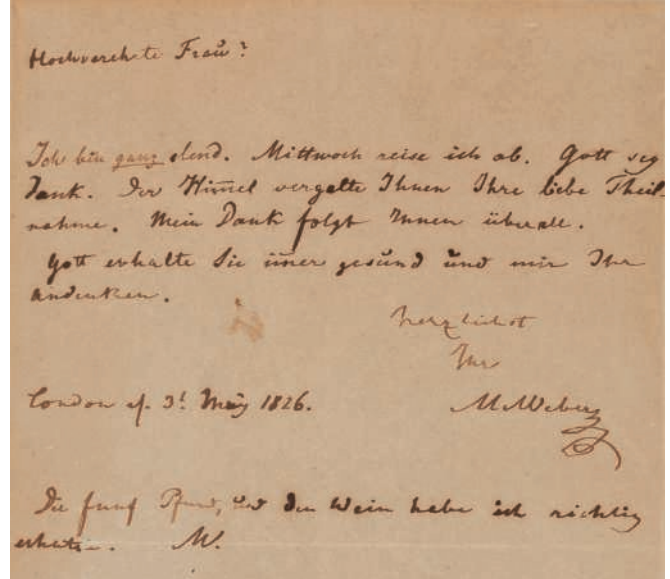 Hochverehrte Frau!
Ich bin ganz elend. Mittwoch reise ich ab. Gott sey
Dank. Der Him̄el vergelte Ihnen Ihre liebe Theil-
nahme. Mein Dank folgt Ihnen überall.
Gott erhalte Sie im̄er gesund und mir Ihr
Andenken.
herzlichst
Ihr
MvWeber
London d. 3! May 1826.
Die fünf Pfund, und den Wein habe ich richtig
erhalten. W.